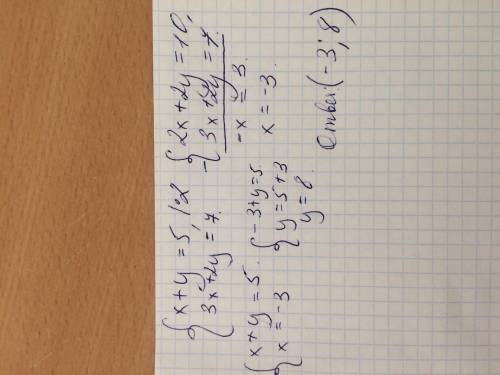 {x+y=5, |·2
3x+2y=7.
-{2x+2y=10,
3x+2y=7.
-x=3
x=-3.
{x+y=5.
x=-3
{-3+y=5.
y=5+3
y=8.
Ответ: (-3; 8)